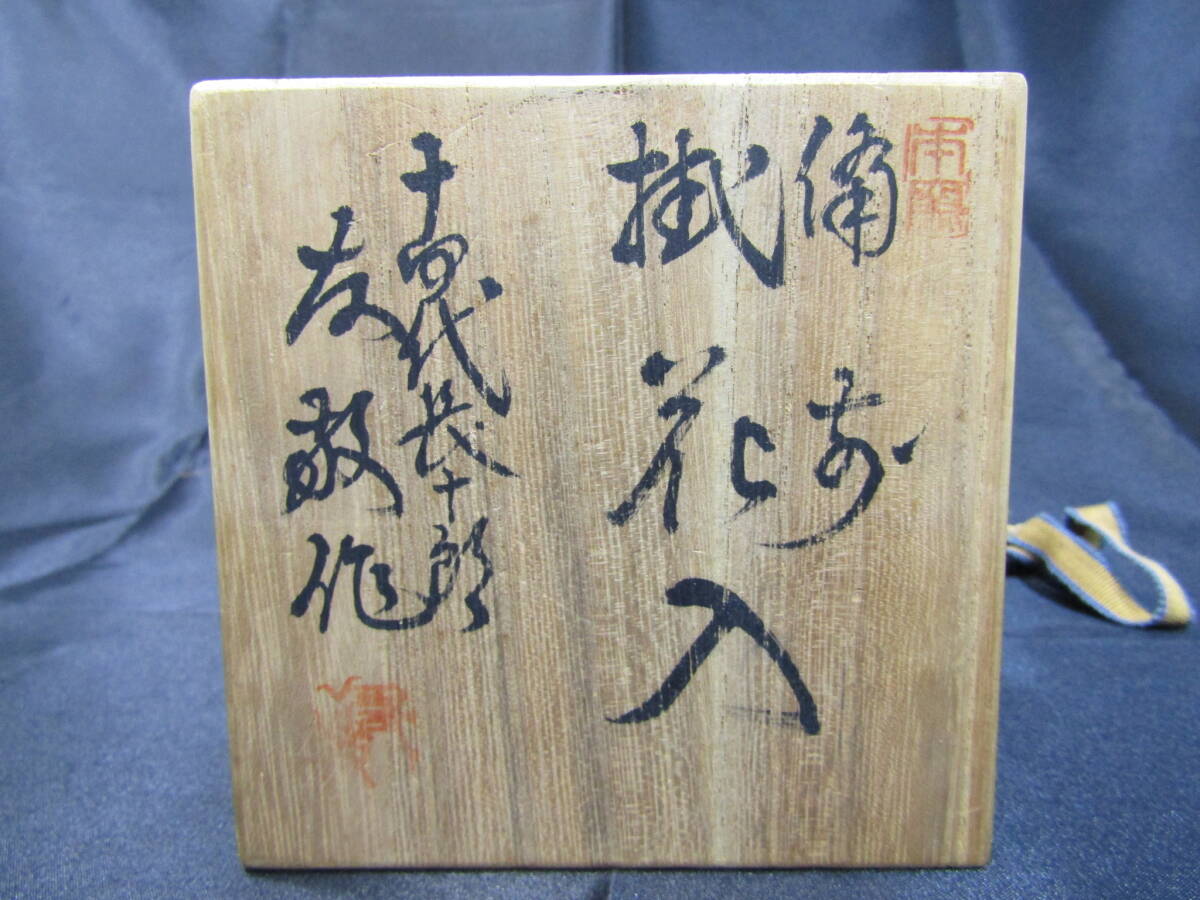 備前
掛花入
十四代長十郎
友敬作